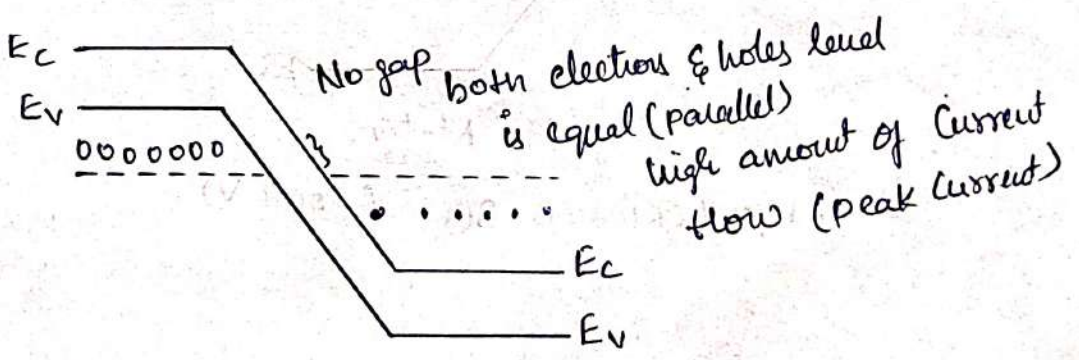 Ec
Ev
No gap both electrons & holes level
is equal (parallel)
high amount of current
flow (peak current)
Ec
Ev